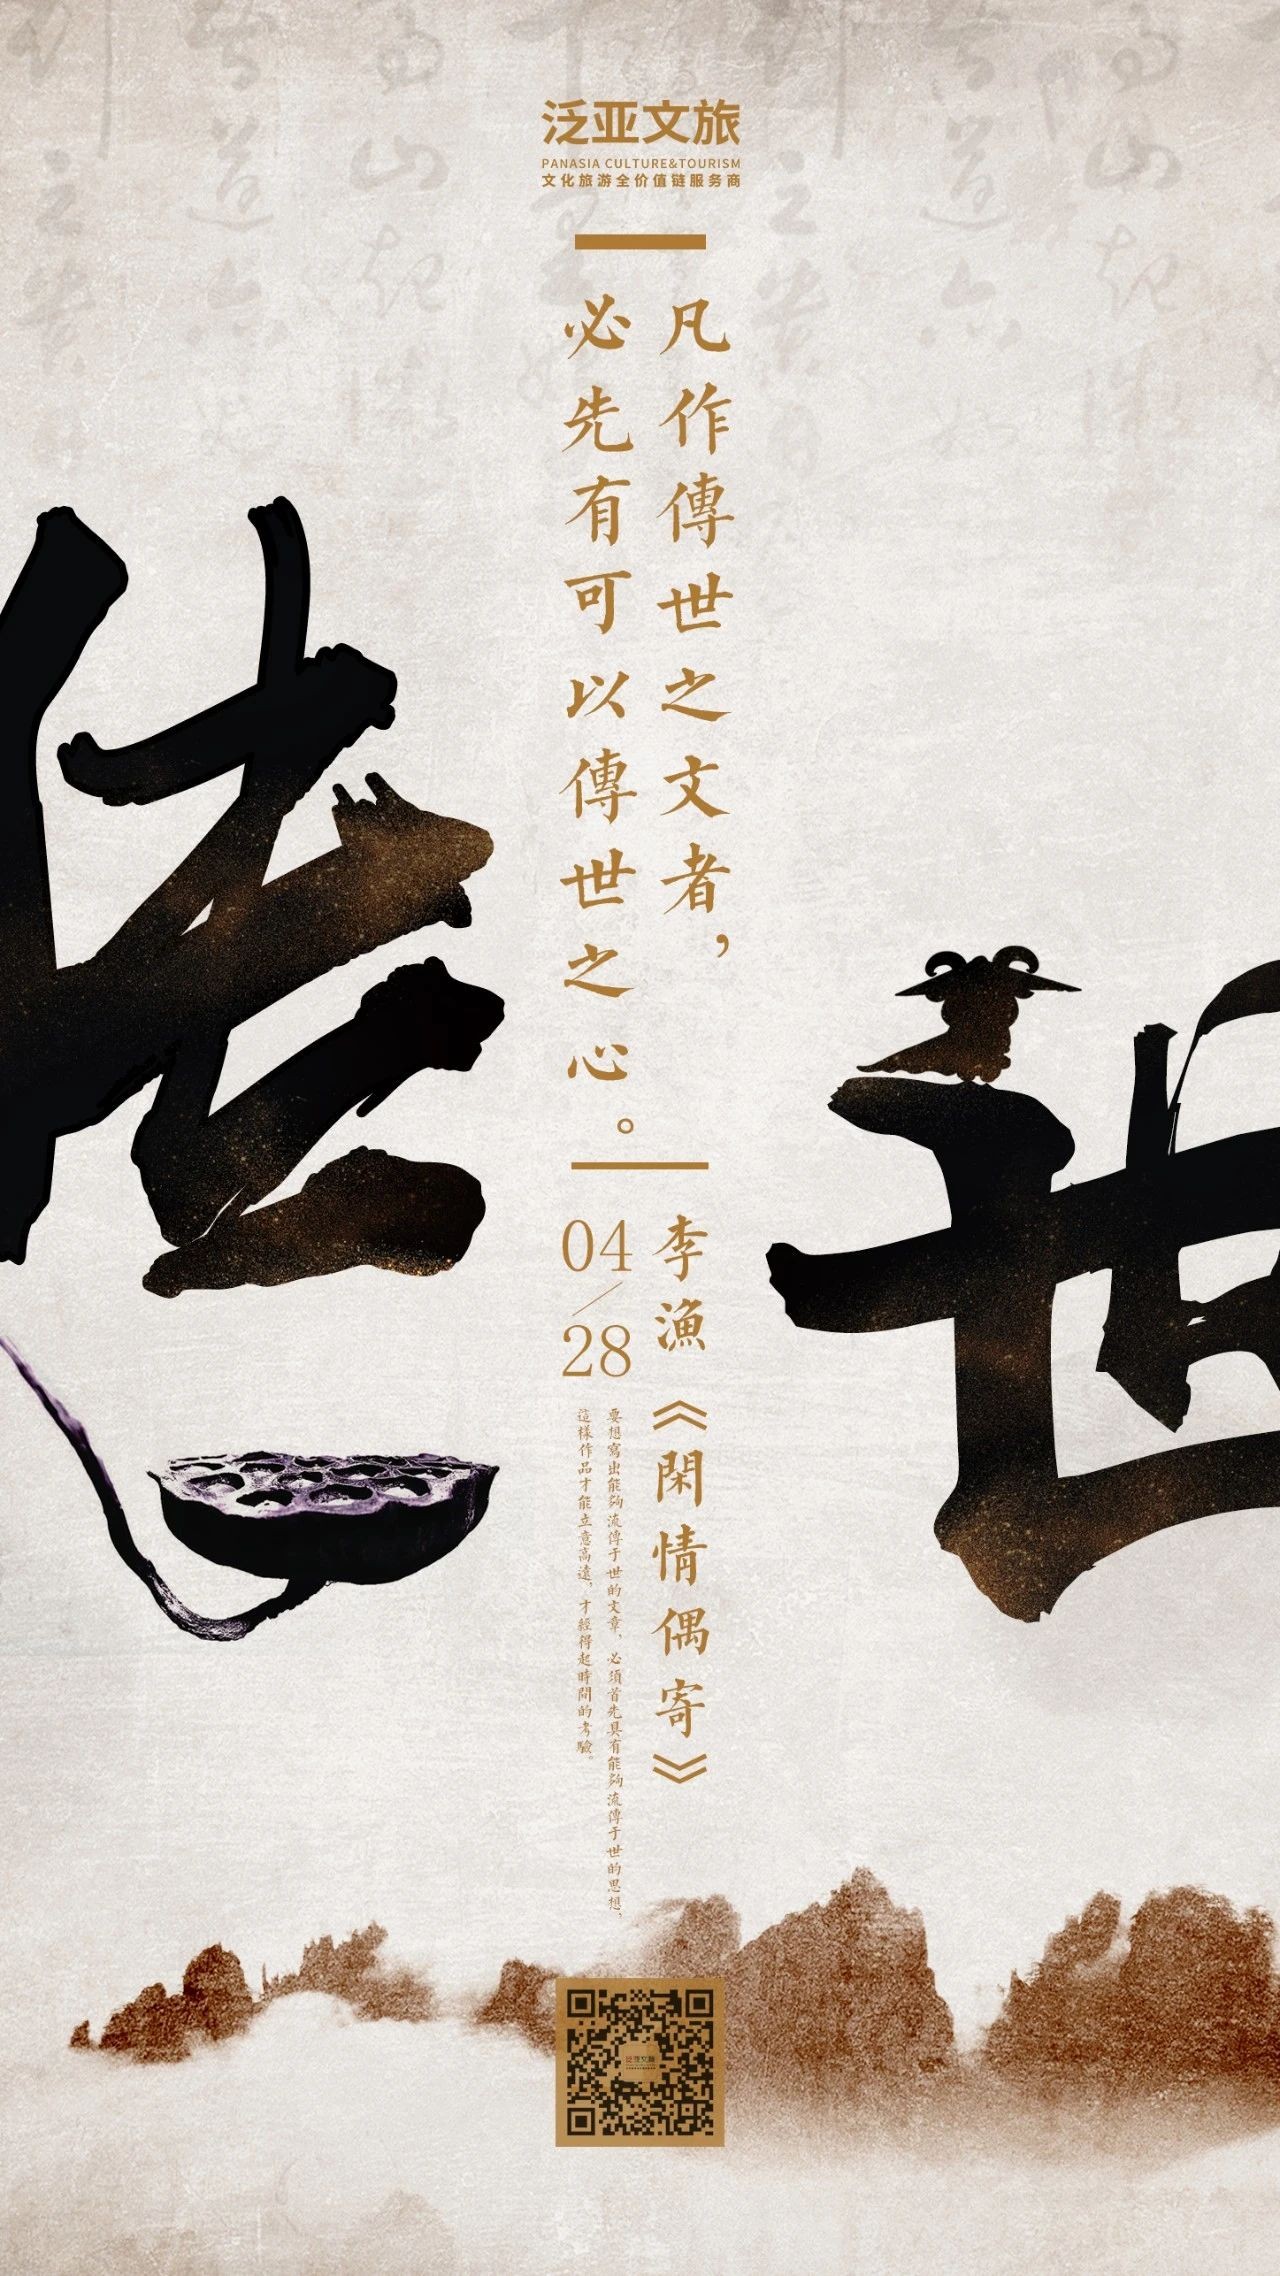 泛亚文旅
PANASIA CULTURE&TOURISM
文化旅游全价值链服务商
凡作傳世之文者，
必先有可以傳世之心。
传
世
李漁《閑情偶寄》
04/28
要想寫出能夠流傳于世的文章，必須首先具有能夠流傳于世的思想，
這樣作品才能立意高遠，才經得起時間的考驗。
泛亚文旅